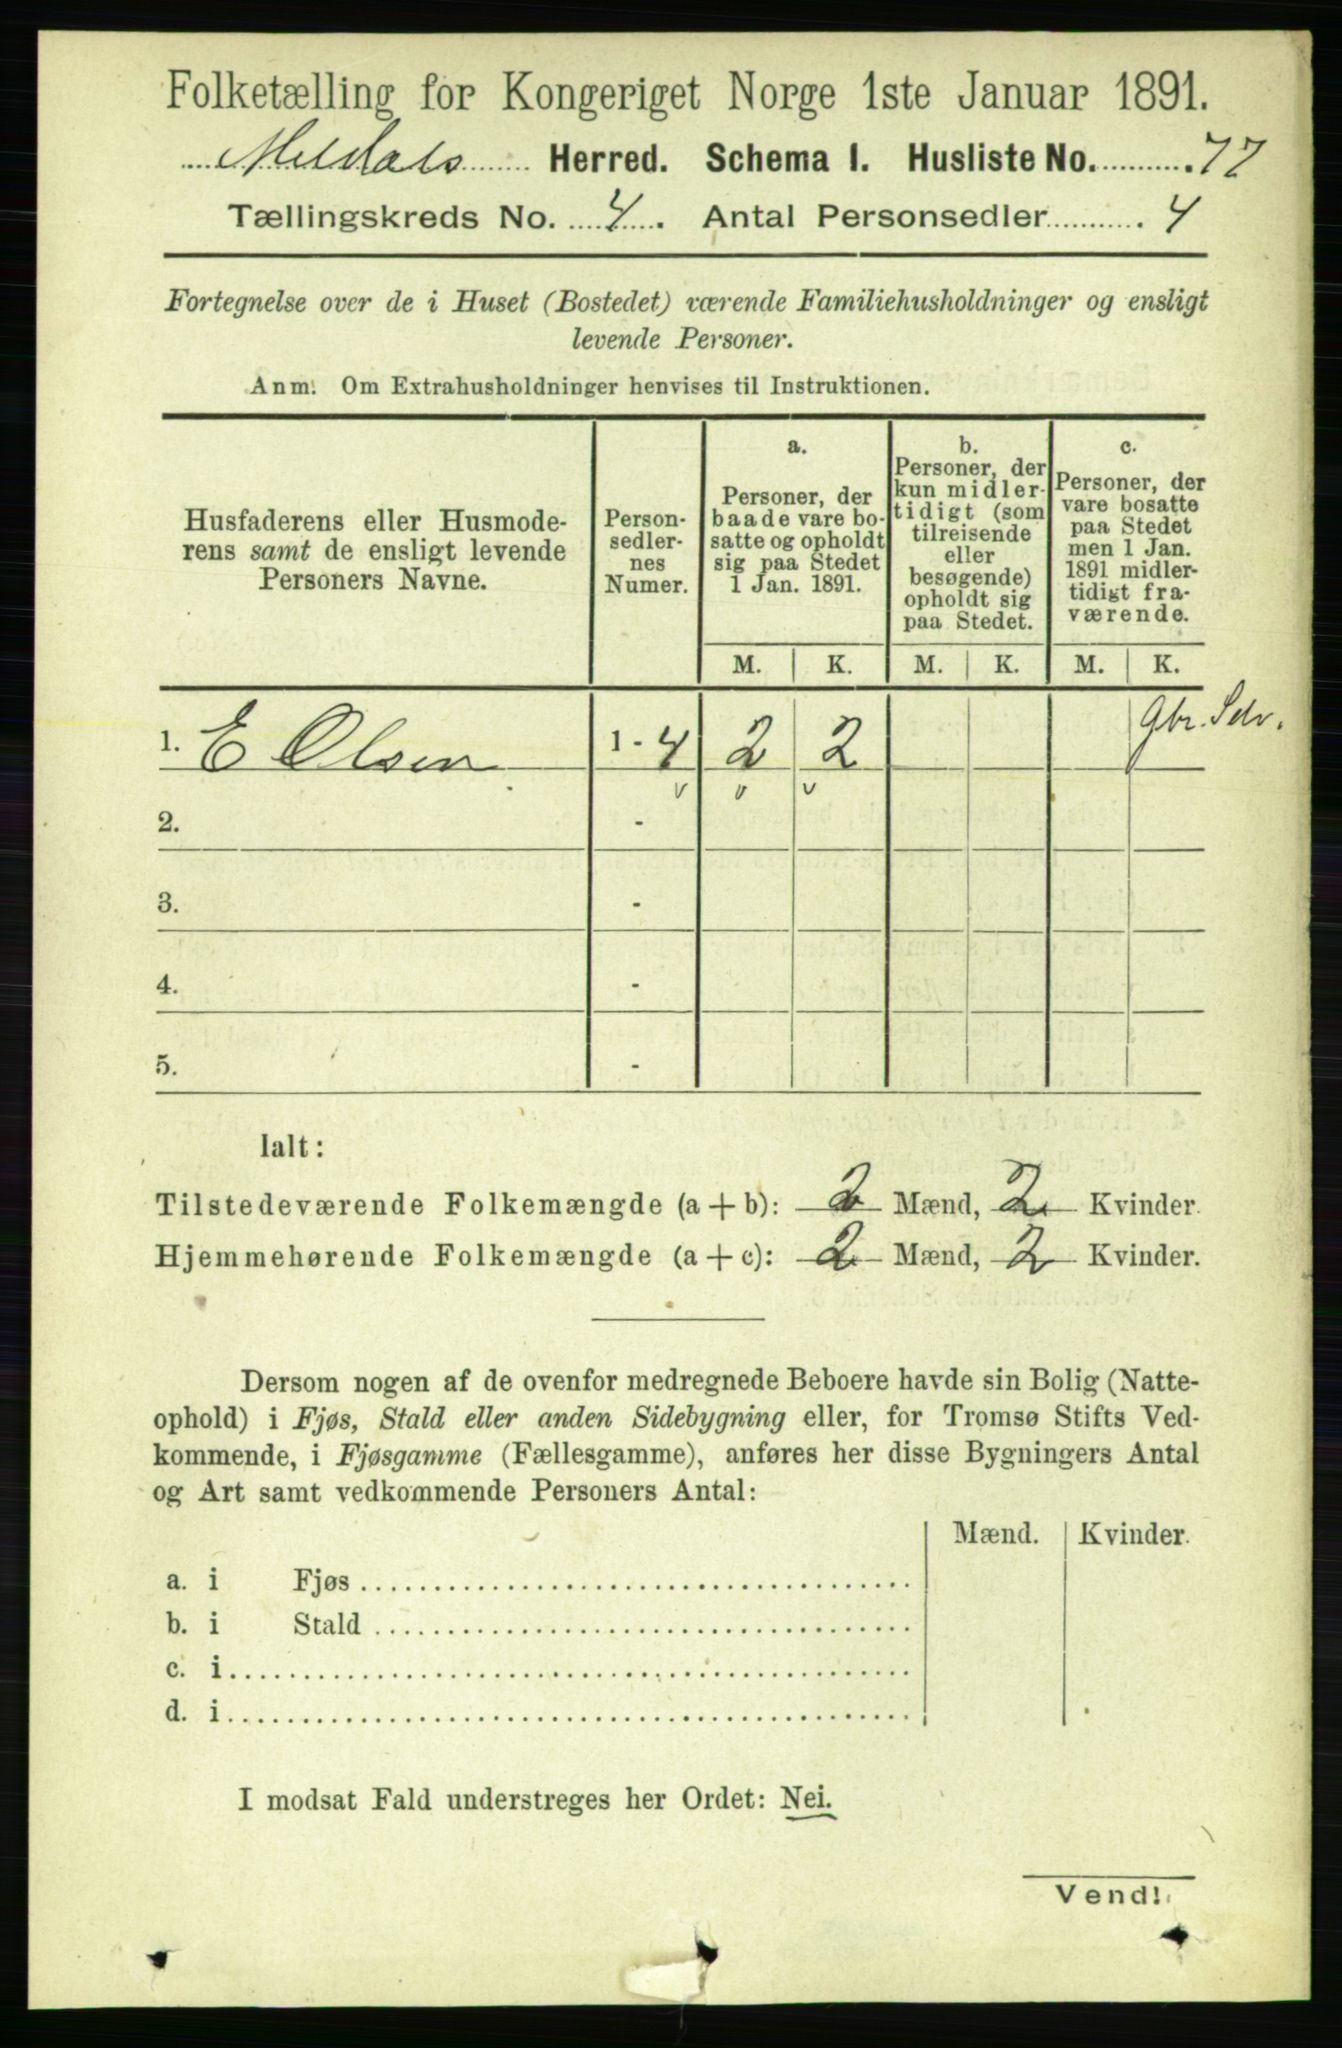 Folketælling for Kongeriget Norge 1ste Januar 1891.
Meldals Herred. Schema I. Husliste No. 77
Tællingskreds No. 4. Antal Personsedler 4
Fortegnelse over de i Huset (Bostedet) værende Familiehusholdninger og ensligt
levende Personer.
Anm. Om Extrahusholdninger henvises til Instruktionen.
Husfaderens eller Husmode-
rens samt de ensligt levende
Personers Navne.
Person-
sedler-
nes
Numer.
a.
Personer, der
baade vare bo-
satte og opholdt
sig paa Stedet
1 Jan. 1891.
b.
Personer, der
kun midler-
tidigt (som
tilreisende
eller
besøgende)
opholdt sig
paa Stedet.
c.
Personer, der
vare bosatte
paa Stedet
men 1 Jan.
1891 midler-
tidigt fra-
værende.
M. K. M. K. M. K.
1. E Olsen 1 - 4 2 2 Gbr. Selv.
v v v
2. -
3. -
4. -
5. -
Ialt:
Tilstedeværende Folkemængde (a + b): 2 Mænd, 2 Kvinder.
Hjemmehørende Folkemængde (a + c): 2 Mænd, 2 Kvinder.
Dersom nogen af de ovenfor medregnede Beboere havde sin Bolig (Natte-
ophold) i Fjøs, Stald eller anden Sidebygning eller, for Tromsø Stifts Ved-
kommende, i Fjøsgamme (Fællesgamme), anføres her disse Bygningers Antal
og Art samt vedkommende Personers Antal:
Mænd. Kvinder.
a. i Fjøs
b. i Stald
c. i
d. i
I modsat Fald understreges her Ordet: Nei.
Vend!